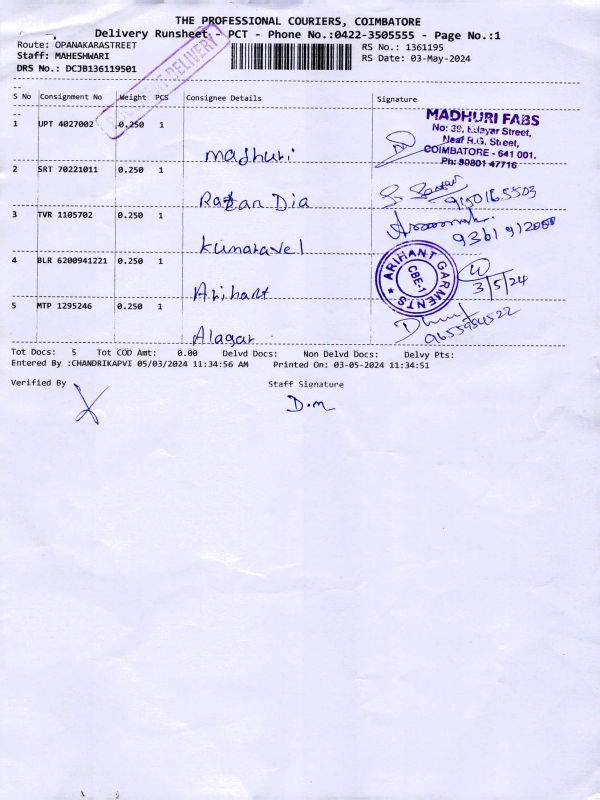 THE PROFESSIONAL COURIERS, COIMBATORE
Delivery Runsheet - PCT - Phone No.:0422-3505555 - Page No.:1
Route: OPANAKARASTREET
Staff: MAHESHWARI
DRS No.: DCJB136119501
RS No.: 1361195
RS Date: 03-May-2024
DELIVERY
S No Consignment No Weight PCS Consignee Details Signature
1 UPT 4027002 0.250 1 madhuri
MADHURI FABS
No: 39, Edayar Street,
Near R.G. Street,
COIMBATORE - 641 001.
Ph: 80801 47716
2 SRT 70221011 0.250 1 Ratan Dia
3 TVR 1105702 0.250 1 kumaravel
4 BLR 6200941221 0.250 1 Arihant
ARIHANT GARMENTS
CBE-1
3/5/24
5 MTP 1295246 0.250 1 Alagar
9655984522
Tot Docs: 5 Tot COD Amt: 0.00 Delvd Docs: Non Delvd Docs: Delvy Pts:
Entered By :CHANDRIKAPVI 05/03/2024 11:34:56 AM Printed On: 03-05-2024 11:34:51
Verified By Staff Signature
D.m